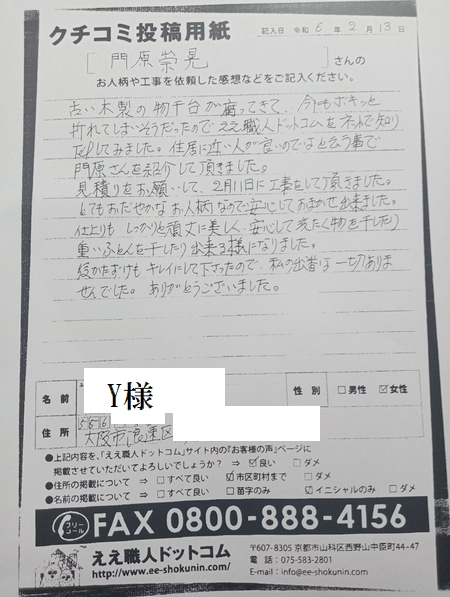 クチコミ投稿用紙
記入日 令和 6 年 2 月 13 日
[ 門原崇晃 ] さんの
お人柄や工事を依頼した感想などをご記入ください。
古い木製の物干台が腐ってきて、今にもポキッと
折れてしまいそうだったのでええ職人ドットコムをネットで知り
TELしてみました。住居に近い人が良いのではと云う事で
門原さんを紹介して頂きました。
見積りをお願いして、2月11日に工事をして頂きました。
とてもおだやかなお人柄なので安心しておまかせ出来ました。
仕上りも しっかりと頑丈に美しく、安心して洗たく物を干したり
重いふとんを干したり出来る様になりました。
後かたずけもキレイにして下さったので、私の出番は一切ありま
せんでした。ありがとうございました。
名前 Y様 性別 □男性 ☑女性
住所 556
大阪市浪速区
●上記内容を、「ええ職人ドットコム」サイト内の「お客様の声」ページに
掲載させていただいてよろしいでしょうか? ⇒ ☑良い □ダメ
●住所の掲載について ⇒ □すべて良い ☑市区町村まで □ダメ
●名前の掲載について ⇒ □すべて良い □苗字のみ ☑イニシャルのみ □ダメ
フリーコール FAX 0800-888-4156
ええ職人ドットコム
http://www.ee-shokunin.com/
〒607-8305 京都市山科区西野山中臣町44-47
電話:075-583-2801
E-mail:info@ee-shokunin.com